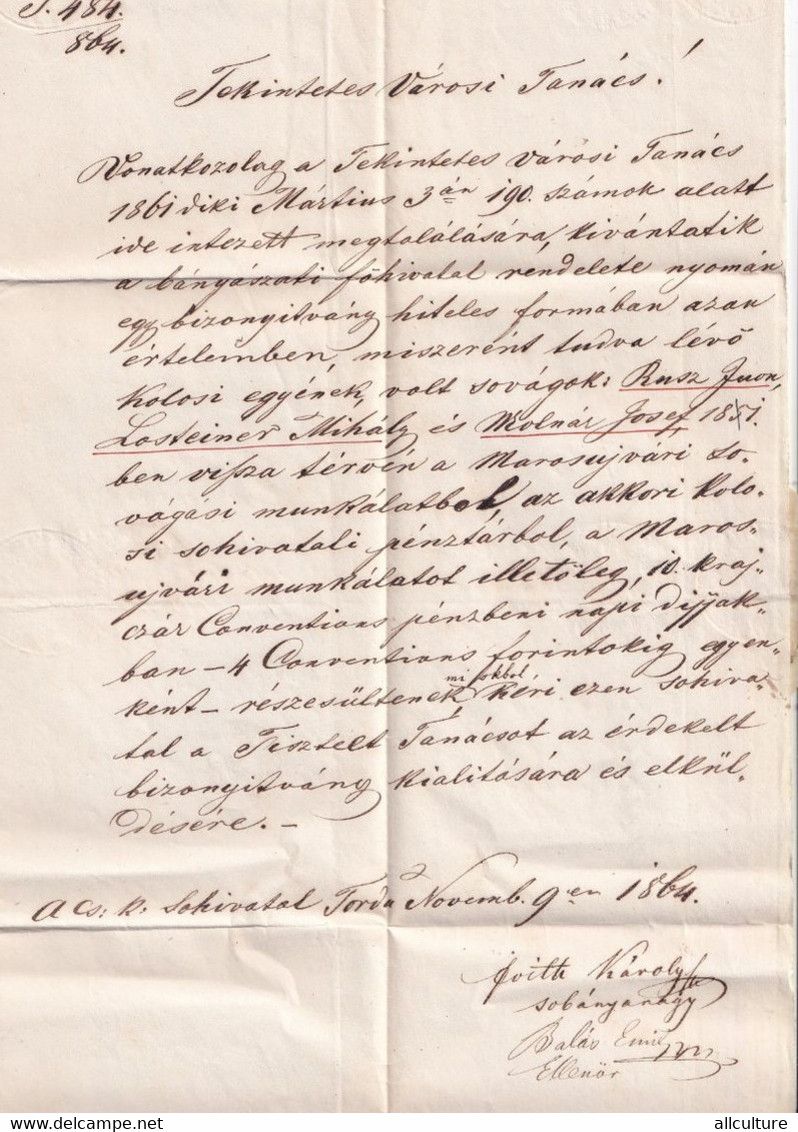 S. 484.
864.
Tekintetes Városi Tanács!
Vonatkozolag a Tekintetes városi Tanács
1861 diki Mártius 3án 190. számok alatt
ide intezett megtalálására, kivántatik
a bányászati föhivatal rendelete nyomán
egy bizonyitvány hiteles formában azan
értelemben, miszerént tudva lévö
kolosi egyének, volt sovágok: Rusz Juon,
Losteiner Mihály és Molnár Josef
ben vissza térvén a Marosujvári so-
vágási munkálatbol, az akkori kolo-
si sohivatali pénztárbol, a Maros-
ujvári munkálatot illetöleg, 10. kraj-
czár Conventions pénzbeni napi dijjak-
ban – 4 Conventions forintokig egyen-
ként – részesültenek mi okbol kéri ezen sohiva-
tal a Tisztelt Tanácsot az érdekelt
bizonyitvány kialitására és elkül-
désére. –
A cs: k: Sohivatal Torda Novemb. 9en 1864.
Károly
sobányanagy
Balás Emil
Ellenör
allculture